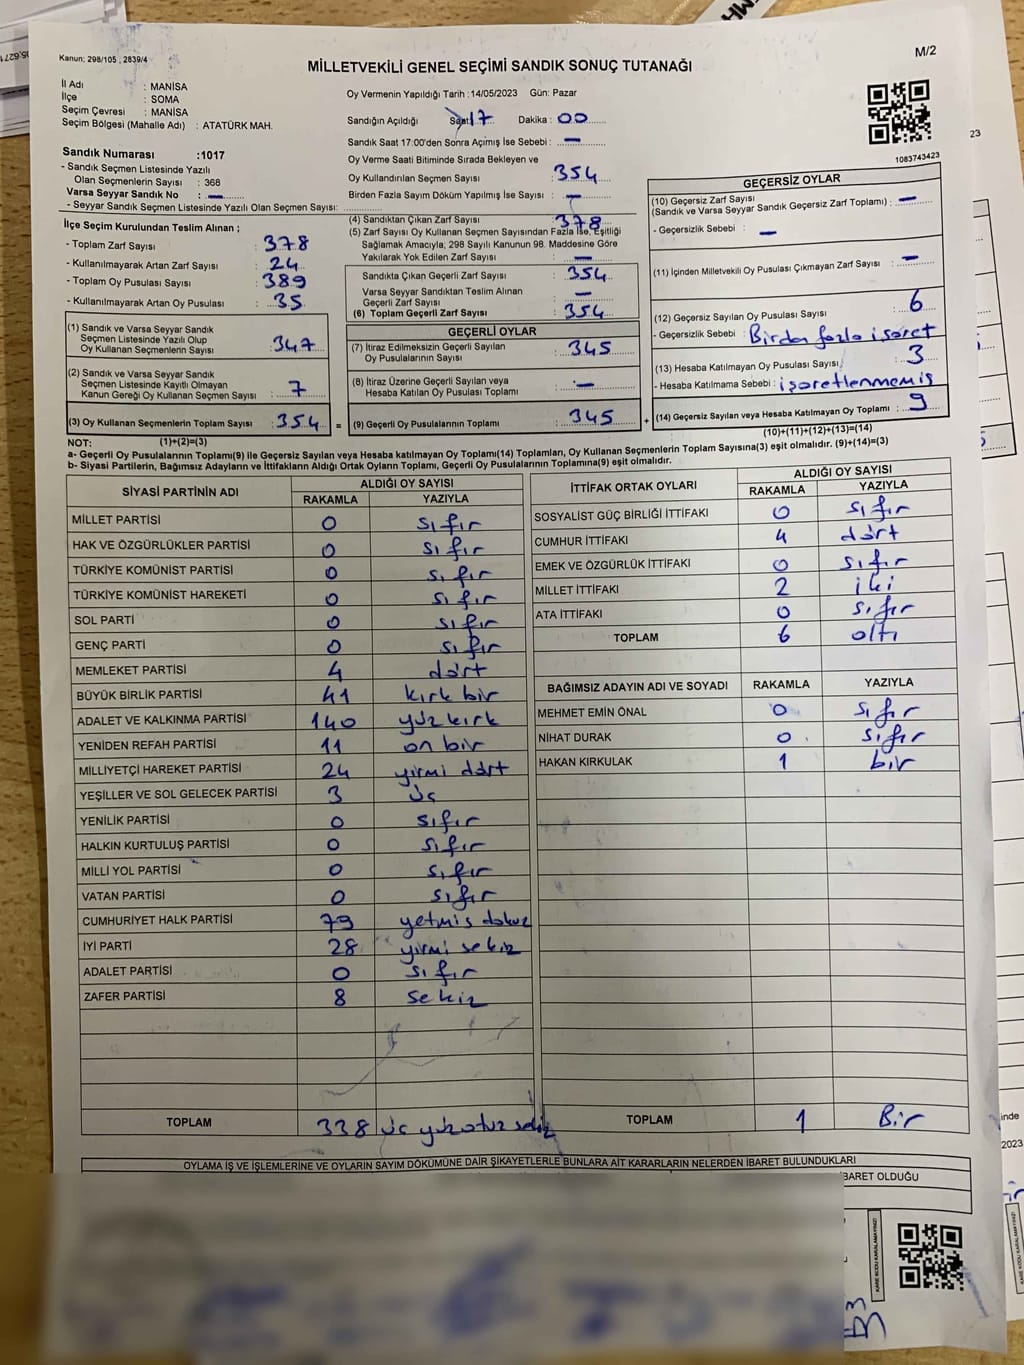 Kanun; 298/105 , 2839/4
M/2
MİLLETVEKİLİ GENEL SEÇİMİ SANDIK SONUÇ TUTANAĞI
İl Adı : MANİSA
İlçe : SOMA
Seçim Çevresi : MANİSA
Seçim Bölgesi (Mahalle Adı) : ATATÜRK MAH.
Sandık Numarası :1017
- Sandık Seçmen Listesinde Yazılı
Olan Seçmenlerin Sayısı : 368
Varsa Seyyar Sandık No : —
- Seyyar Sandık Seçmen Listesinde Yazılı Olan Seçmen Sayısı:
Oy Vermenin Yapıldığı Tarih :14/05/2023 Gün: Pazar
Sandığın Açıldığı Saat: 17 Dakika : 00
Sandık Saat 17:00'den Sonra Açımış İse Sebebi : —
Oy Verme Saati Bitiminde Sırada Bekleyen ve
Oy Kullandırılan Seçmen Sayısı : 354
Birden Fazla Sayım Döküm Yapılmış İse Sayısı : —
1083743423
İlçe Seçim Kurulundan Teslim Alınan ;
- Toplam Zarf Sayısı : 378
- Kullanılmayarak Artan Zarf Sayısı : 24
- Toplam Oy Pusulası Sayısı : 389
- Kullanılmayarak Artan Oy Pusulası : 35
(1) Sandık ve Varsa Seyyar Sandık
Seçmen Listesinde Yazılı Olup
Oy Kullanan Seçmenlerin Sayısı : 347
(2) Sandık ve Varsa Seyyar Sandık
Seçmen Listesinde Kayıtlı Olmayan
Kanun Gereği Oy Kullanan Seçmen Sayısı : 7
(3) Oy Kullanan Seçmenlerin Toplam Sayısı : 354 =
(1)+(2)=(3)
(4) Sandıktan Çıkan Zarf Sayısı : 378
(5) Zarf Sayısı Oy Kullanan Seçmen Sayısından Fazla İse, Eşitliği
Sağlamak Amacıyla, 298 Sayılı Kanunun 98. Maddesine Göre
Yakılarak Yok Edilen Zarf Sayısı : —
Sandıkta Çıkan Geçerli Zarf Sayısı : 354
Varsa Seyyar Sandıktan Teslim Alınan
Geçerli Zarf Sayısı : —
(6) Toplam Geçerli Zarf Sayısı : 354
GEÇERLİ OYLAR
(7) İtiraz Edilmeksizin Geçerli Sayılan
Oy Pusulalarının Sayısı : 345
(8) İtiraz Üzerine Geçerli Sayılan veya
Hesaba Katılan Oy Pusulası Toplamı : —
(9) Geçerli Oy Pusulalarının Toplamı : 345 +
GEÇERSİZ OYLAR
(10) Geçersiz Zarf Sayısı
(Sandık ve Varsa Seyyar Sandık Geçersiz Zarf Toplamı) : —
- Geçersizlik Sebebi : —
(11) İçinden Milletvekili Oy Pusulası Çıkmayan Zarf Sayısı : —
(12) Geçersiz Sayılan Oy Pusulası Sayısı : 6
- Geçersizlik Sebebi : Birden fazla işaret
(13) Hesaba Katılmayan Oy Pusulası Sayısı : 3
- Hesaba Katılmama Sebebi : işaretlenmemiş
(14) Geçersiz Sayılan veya Hesaba Katılmayan Oy Toplamı : 9
(10)+(11)+(12)+(13)=(14)
NOT:
a- Geçerli Oy Pusulalarının Toplamı(9) ile Geçersiz Sayılan veya Hesaba katılmayan Oy Toplamı(14) Toplamları, Oy Kullanan Seçmenlerin Toplam Sayısına(3) eşit olmalıdır. (9)+(14)=(3)
b- Siyasi Partilerin, Bağımsız Adayların ve İttifakların Aldığı Ortak Oyların Toplamı, Geçerli Oy Pusulalarının Toplamına(9) eşit olmalıdır.
SİYASİ PARTİNİN ADI ALDIĞI OY SAYISI
RAKAMLA YAZIYLA
MİLLET PARTİSİ 0 sıfır
HAK VE ÖZGÜRLÜKLER PARTİSİ 0 sıfır
TÜRKİYE KOMÜNİST PARTİSİ 0 sıfır
TÜRKİYE KOMÜNİST HAREKETİ 0 sıfır
SOL PARTİ 0 sıfır
GENÇ PARTİ 0 sıfır
MEMLEKET PARTİSİ 4 dört
BÜYÜK BİRLİK PARTİSİ 41 kırk bir
ADALET VE KALKINMA PARTİSİ 140 yüz kırk
YENİDEN REFAH PARTİSİ 11 on bir
MİLLİYETÇİ HAREKET PARTİSİ 24 yirmi dört
YEŞİLLER VE SOL GELECEK PARTİSİ 3 üç
YENİLİK PARTİSİ 0 sıfır
HALKIN KURTULUŞ PARTİSİ 0 sıfır
MİLLİ YOL PARTİSİ 0 sıfır
VATAN PARTİSİ 0 sıfır
CUMHURİYET HALK PARTİSİ 79 yetmiş dokuz
İYİ PARTİ 28 yirmi sekiz
ADALET PARTİSİ 0 sıfır
ZAFER PARTİSİ 8 sekiz
TOPLAM 338 üç yüz otuz sekiz
İTTİFAK ORTAK OYLARI ALDIĞI OY SAYISI
RAKAMLA YAZIYLA
SOSYALİST GÜÇ BİRLİĞİ İTTİFAKI 0 sıfır
CUMHUR İTTİFAKI 4 dört
EMEK VE ÖZGÜRLÜK İTTİFAKI 0 sıfır
MİLLET İTTİFAKI 2 iki
ATA İTTİFAKI 0 sıfır
TOPLAM 6 altı
BAĞIMSIZ ADAYIN ADI VE SOYADI RAKAMLA YAZIYLA
MEHMET EMİN ÖNAL 0 sıfır
NİHAT DURAK 0 sıfır
HAKAN KIRKULAK 1 bir
TOPLAM 1 Bir
OYLAMA İŞ VE İŞLEMLERİNE VE OYLARIN SAYIM DÖKÜMÜNE DAİR ŞİKAYETLERLE BUNLARA AİT KARARLARIN NELERDEN İBARET BULUNDUKLARI
BARET OLDUĞU
KARE KODU KARALAMAYINIZ!
23
inde
2023